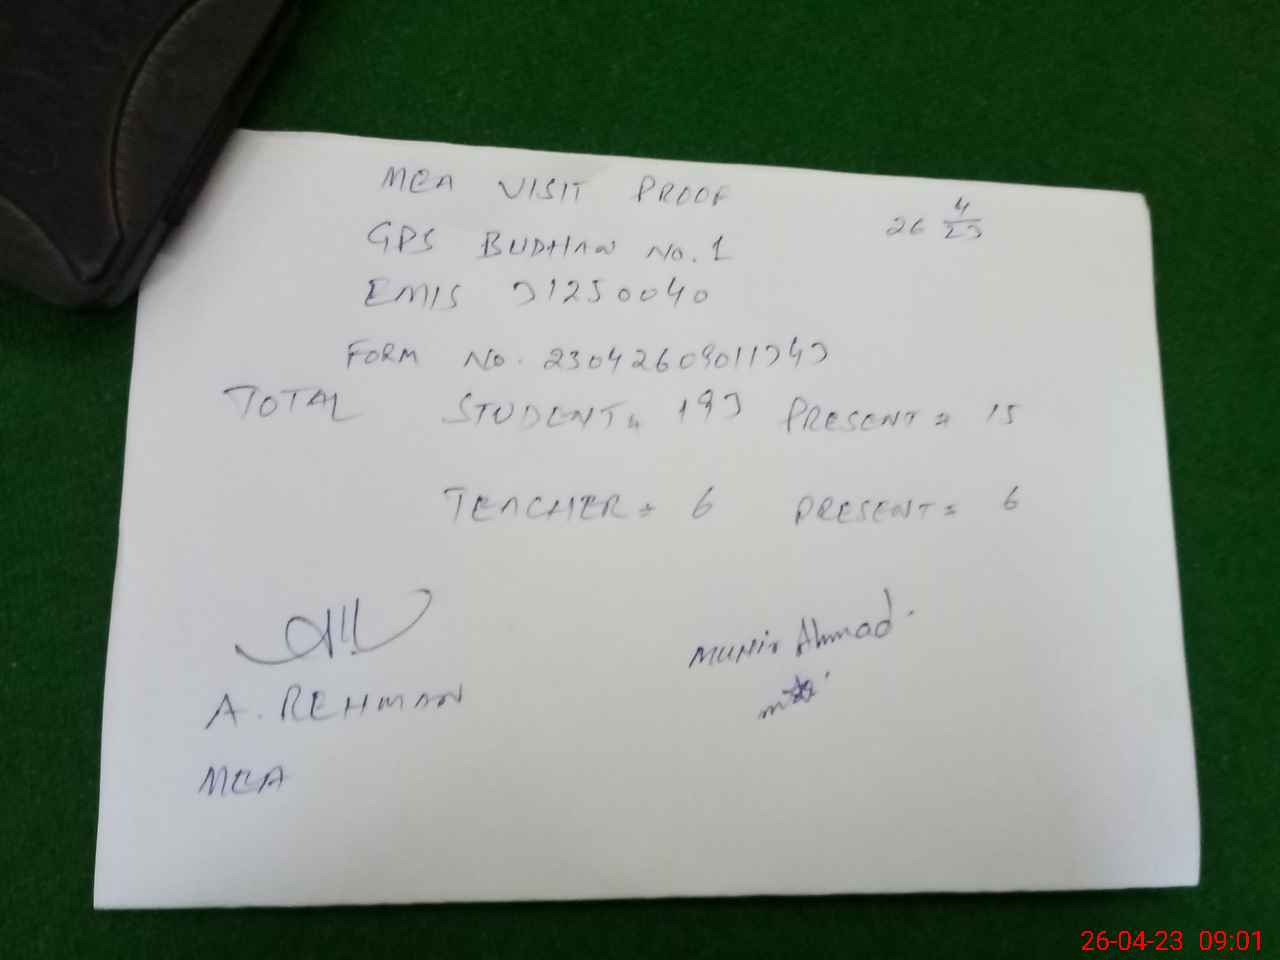 MEA VISIT PROOF
26 4/23
GPS BUDHAN No. 1
EMIS 31250040
FORM No. 23042609011343
TOTAL STUDENT = 193 PRESENT = 15
TEACHER = 6 PRESENT = 6
Munir Ahmad
A. REHMAN
MEA
26-04-23 09:01